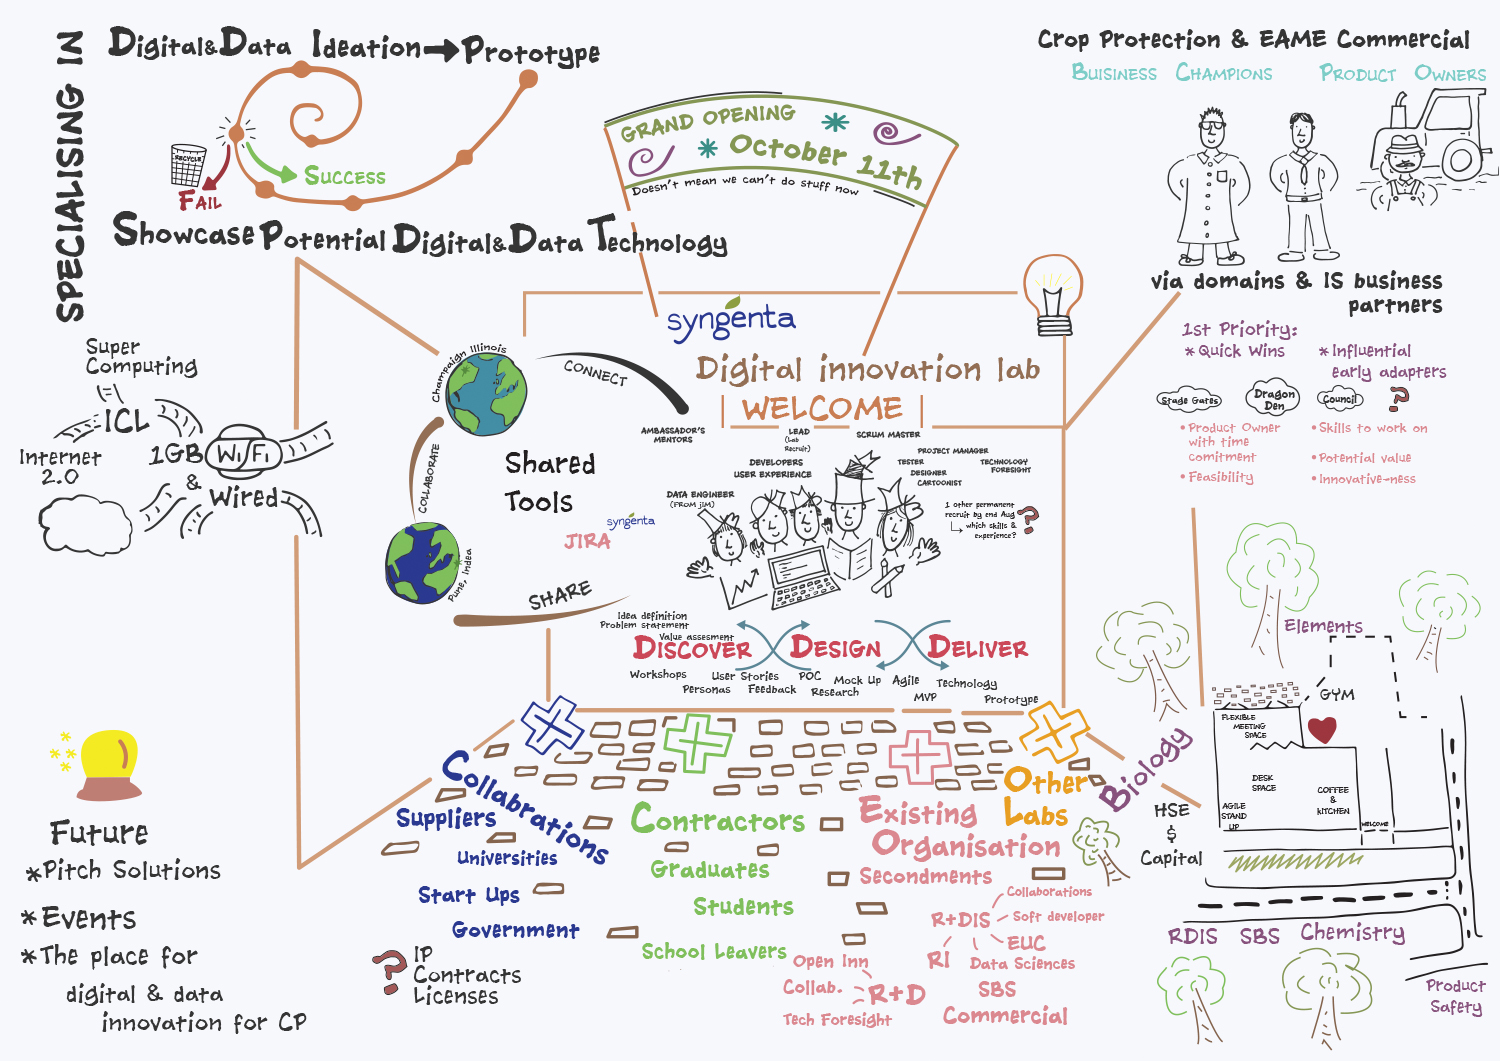 SPECIALISING IN
Digital&Data Ideation Prototype
RECYCLE
Success
Fail
Showcase Potential Digital&Data Technology
GRAND OPENING
October 11th
Doesn't mean we can't do stuff now
Crop Protection & EAME Commercial
Buisiness Champions Product Owners
via domains & IS business
partners
1st Priority:
* Quick Wins
* Influential
early adapters
Stage Gates
Dragon
Den
Council
?
• Product Owner
with time
comitment
• Feasibility
• Skills to work on
• Potential value
• Innovative-ness
syngenta
Digital innovation lab
WELCOME
Super
Computing
(=\
ICL
Internet
2.0
1GB
WiFi
&
Wired
Champaign Illinois
CONNECT
COLLABORATE
Pune, Indea
SHARE
Shared
Tools
syngenta
JIRA
AMBASSADOR'S
MENTORS
LEAD
(Lab
Recruit)
SCRUM MASTER
DEVELOPERS
USER EXPERIENCE
PROJECT MANAGER
TESTER
TECHNOLOGY
FORESIGHT
DESIGNER
CARTOONIST
DATA ENGINEER
(FROM JIM)
1 other permanent
recruit by end Aug
which skills &
experience?
?
Idea definition
Problem statement
Value assesment
Discover
Design
Deliver
Workshops
User Stories
POC
Mock Up
Agile
Technology
Personas
Feedback
Research
MVP
Prototype
Collabrations
Suppliers
Universities
Start Ups
Government
?
IP
Contracts
Licenses
Contractors
Graduates
Students
School Leavers
Existing
Organisation
Secondments
Collaborations
R+DIS
Soft developer
EUC
RI
Data Sciences
Open Inn
Collab.
R+D
Tech Foresight
SBS
Commercial
Other
Labs
Biology
HSE
&
Capital
Elements
GYM
FLEXIBLE
MEETING
SPACE
DESK
SPACE
COFFEE
&
KITCHEN
AGILE
STAND
UP
WELCOME
RDIS SBS Chemistry
Product
Safety
Future
*Pitch Solutions
*Events
*The place for
digital & data
innovation for CP